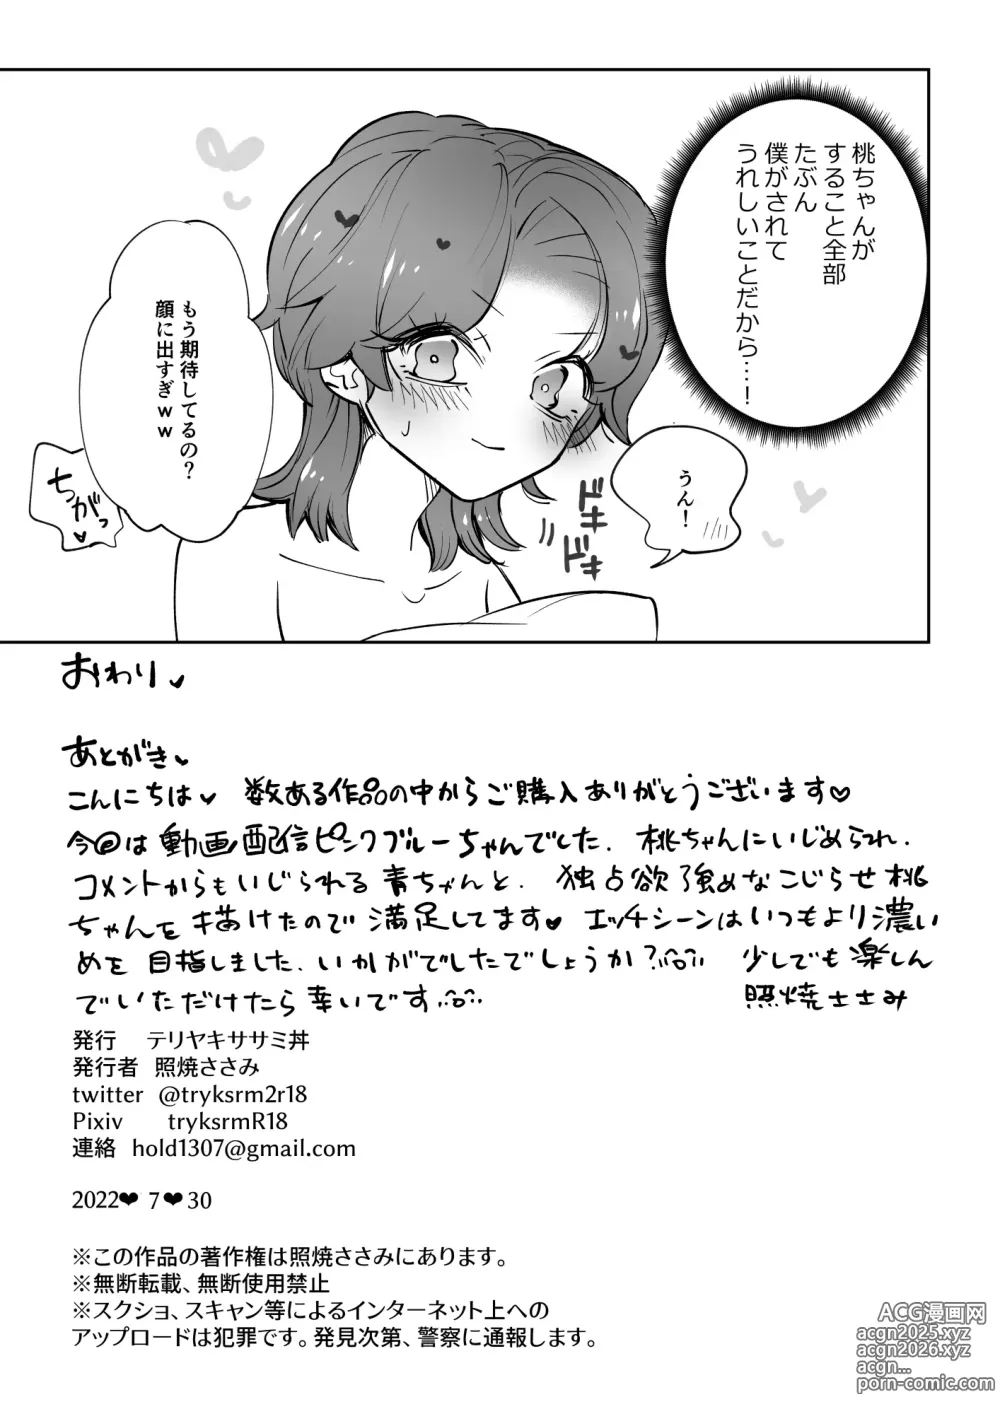 桃ちゃんが
すること全部
たぶん
僕がされて
うれしいことだから…！
うん！
ドキ
ドキ
もう期待してるの？
顔に出すぎｗｗ
ちがっ
おわり
あとがき
こんにちは 数ある作品の中からご購入ありがとうございます
今回は動画配信ピンクブルーちゃんでした. 桃ちゃんにいじめられ.
コメントからもいじられる青ちゃんと. 独占欲強めなこじらせ桃
ちゃんを描けたので満足してます エッチシーンはいつもより濃い
めを目指しました. いかがでしたでしょうか? 少しでも楽しん
でいただけたら幸いです
照焼ささみ
発行 テリヤキササミ丼
発行者 照焼ささみ
twitter @tryksrm2r18
Pixiv tryksrmR18
連絡 hold1307@gmail.com
2022❤ 7 ❤ 30
※この作品の著作権は照焼ささみにあります。
※無断転載、無断使用禁止
※スクショ、スキャン等によるインターネット上への
アップロードは犯罪です。発見次第、警察に通報します。
ACG漫画网
acgn2025.xyz
acgn2026.xyz
acgn...
porn-comic.com